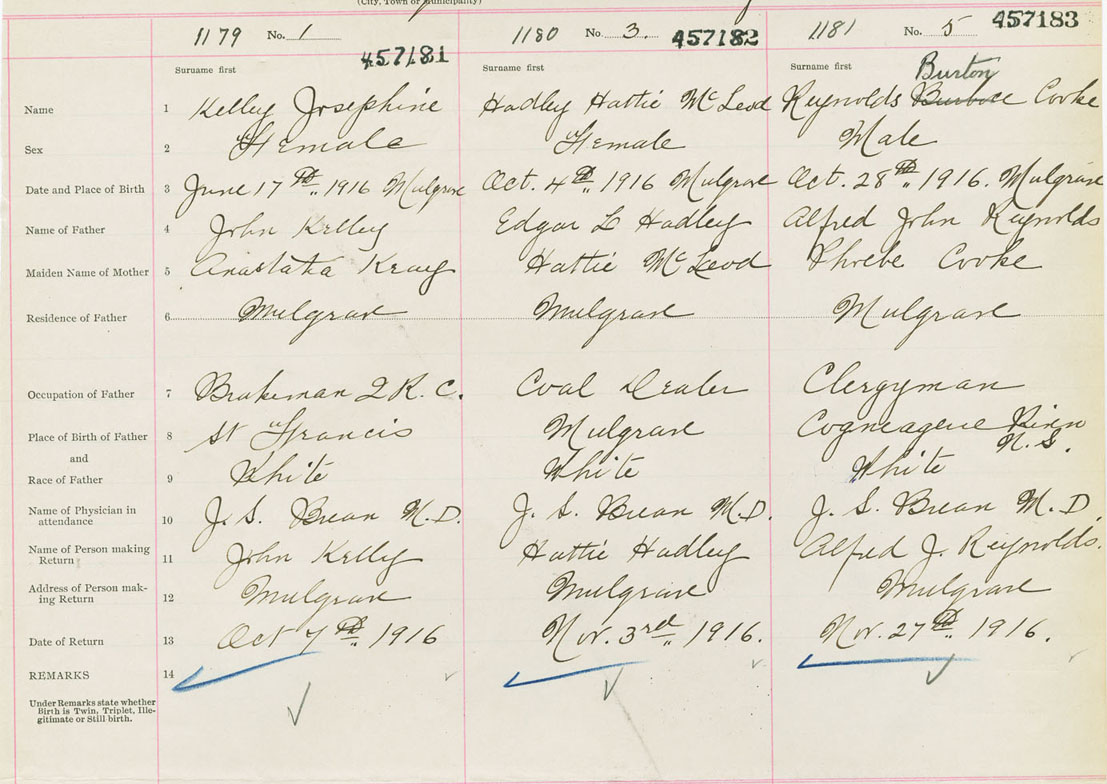 (City, Town or Municipality)
1179 No. 1 457181 1180 No. 3. 457182 1181 No. 5 457183
Surname first Surname first Surname first Burton
Name 1 Kelley Josephine Hadley Hattie McLeod Reynolds Cooke
Sex 2 Female Female Male
Date and Place of Birth 3 June 17th 1916 Mulgrave Oct. 4th 1916 Mulgrave Oct. 28th 1916. Mulgrave
Name of Father 4 John Kelley Edgar L Hadley Alfred John Reynolds
Maiden Name of Mother 5 Anastatia Hattie McLeod Phoebe Cooke
Residence of Father 6 Mulgrave Mulgrave Mulgrave
Occupation of Father 7 Brakeman R. C. Coal Dealer Clergyman
Place of Birth of Father 8 St Francis Mulgrave N.S.
and
Race of Father 9 White White White
Name of Physician in
attendance 10 J. S. M.D. J. S. M.D. J. S. M.D.
Name of Person making
Return 11 John Kelly Hattie Hadley Alfred J. Reynolds.
Address of Person mak-
ing Return 12 Mulgrave Mulgrave Mulgrave
Date of Return 13 Oct 7th 1916 Nov. 3rd 1916. Nov. 27th 1916.
REMARKS 14
Under Remarks state whether
Birth is Twin, Triplet, Ille-
gitimate or Still birth.